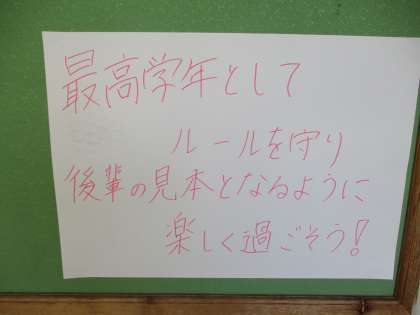 最高学年として
ルールを守り
後輩の見本となるように
楽しく過ごそう!